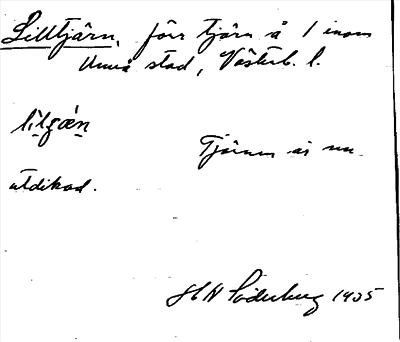 Lilltjärn, förr tjärn å 1 inom
Umeå stad, Västerb. l.
Tjärnen är nu
utdikad.
H N Söderberg 1935